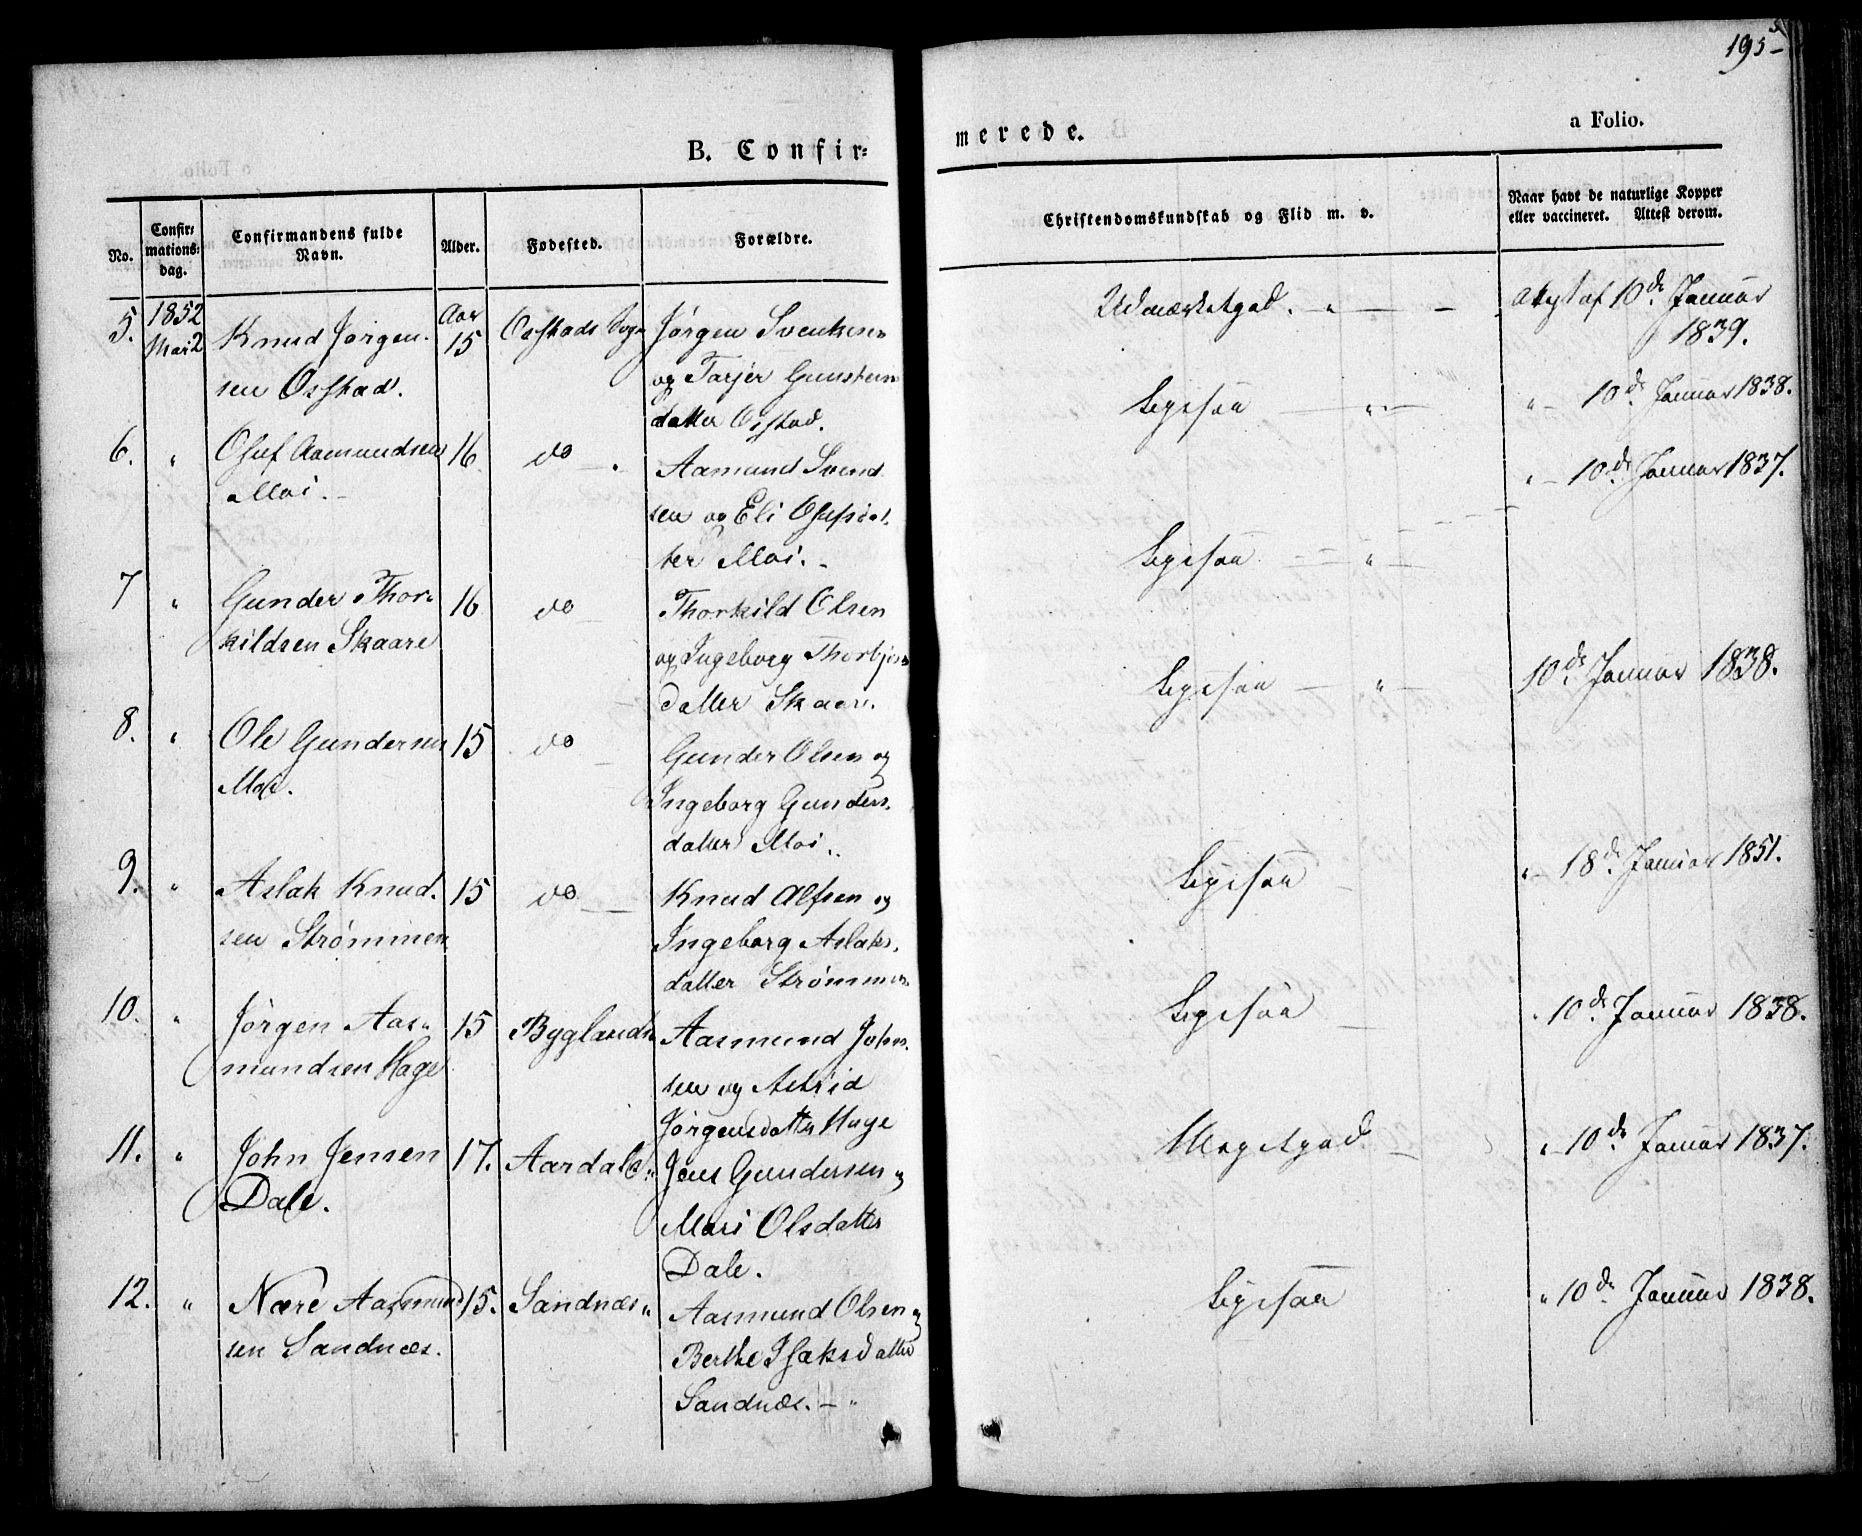 195
B. Confir=
merede.
a Folio.
No.
Confir=
mations=
dag.
Confirmandens fulde
Navn.
Alder.
Fødested.
Forældre.
Christendomskundskab og Flid m. v.
Naar havt de naturlige Kopper
eller vaccineret. Attest derom.
5.
1852
Mai 2
Knud Jørgen-
sen Osstad.
Aar
15
Osstads Sogn
Jørgen Svenksen
og Tarjer Gunsteen
datter Osstad.
Udmærketgod. " —
Attest af 10de Januar
1839.
6.
"
Oluf Aamundsen
Moi. —
16
do — .
Aamund Svend
sen og Eli Olufsdat
ter Moi. —
Ligesaa — " —
" — 10de Januar 1838.
7
"
Gunder Thor-
kildsen Skaare
16
do —
Thorkild Olsen
og Ingeborg Thorbjørns
datter Skaare.
Ligesaa — " —
" — 10de Januar 1837.
8.
"
Ole Gundersen
Moi.
15
do —
Gunder Olsen og
Ingeborg Gunders.
datter Moi.
Ligesaa — " —
10de Januar 1838.
9.
"
Aslak Knud.
sen Strømmen
15
do —
Knud Alfsen og
Ingeborg Aslaks.
datter Strømmen
Ligesaa —
" — 18de Januar 1851.
10.
"
Jørgen Aas-
mundsen Hage
15
Byglands
Aasmund Johns.
sen og Astrid
Jørgensdatter Hage
Ligesaa —
" 10de Januar 1838.
11.
"
John Jensen
Dale.
17.
Aardals "
Jens Gundersen og
Mari Olsdatter
Dale.
Megetgod —
" — 10de Januar 1837.
12.
"
Nære Aasmund
sen Sandnæs.
15.
Sandnæs "
Aasmund Olsen og
Berthe Isaksdatter
Sandnæs. — "
Ligesaa
" 10de Januar 1838.